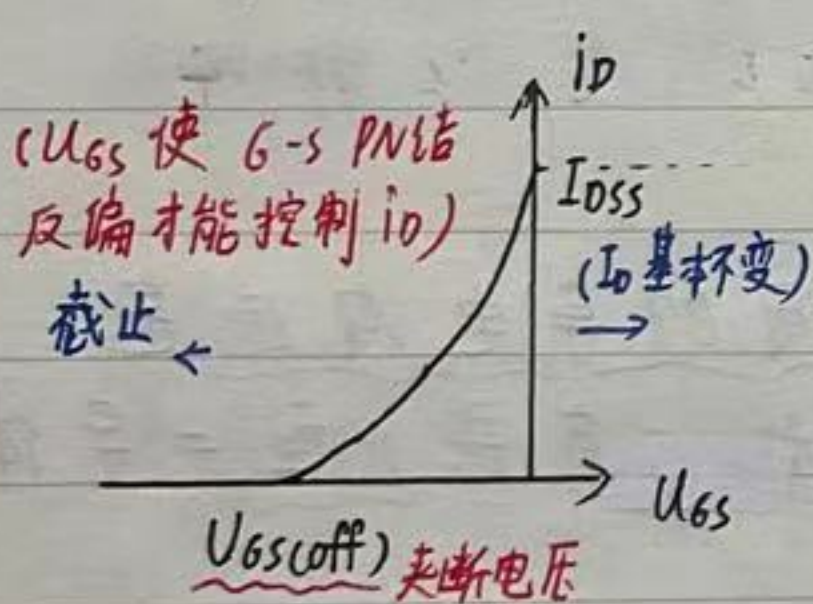 iD
(UGS 使 G-S PN结
反偏才能控制 iD)
IDSS
(ID基本不变)
截止
UGS
UGS(off) 夹断电压